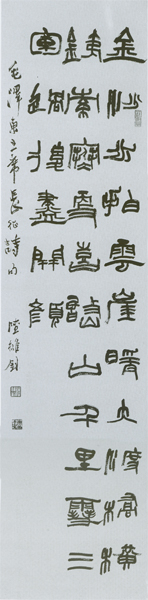 金沙水拍雲崖暖大渡橋橫
鐵索寒更喜岷山千里雪三
軍過後盡開顏
毛澤東主席長征詩句 陸維釗